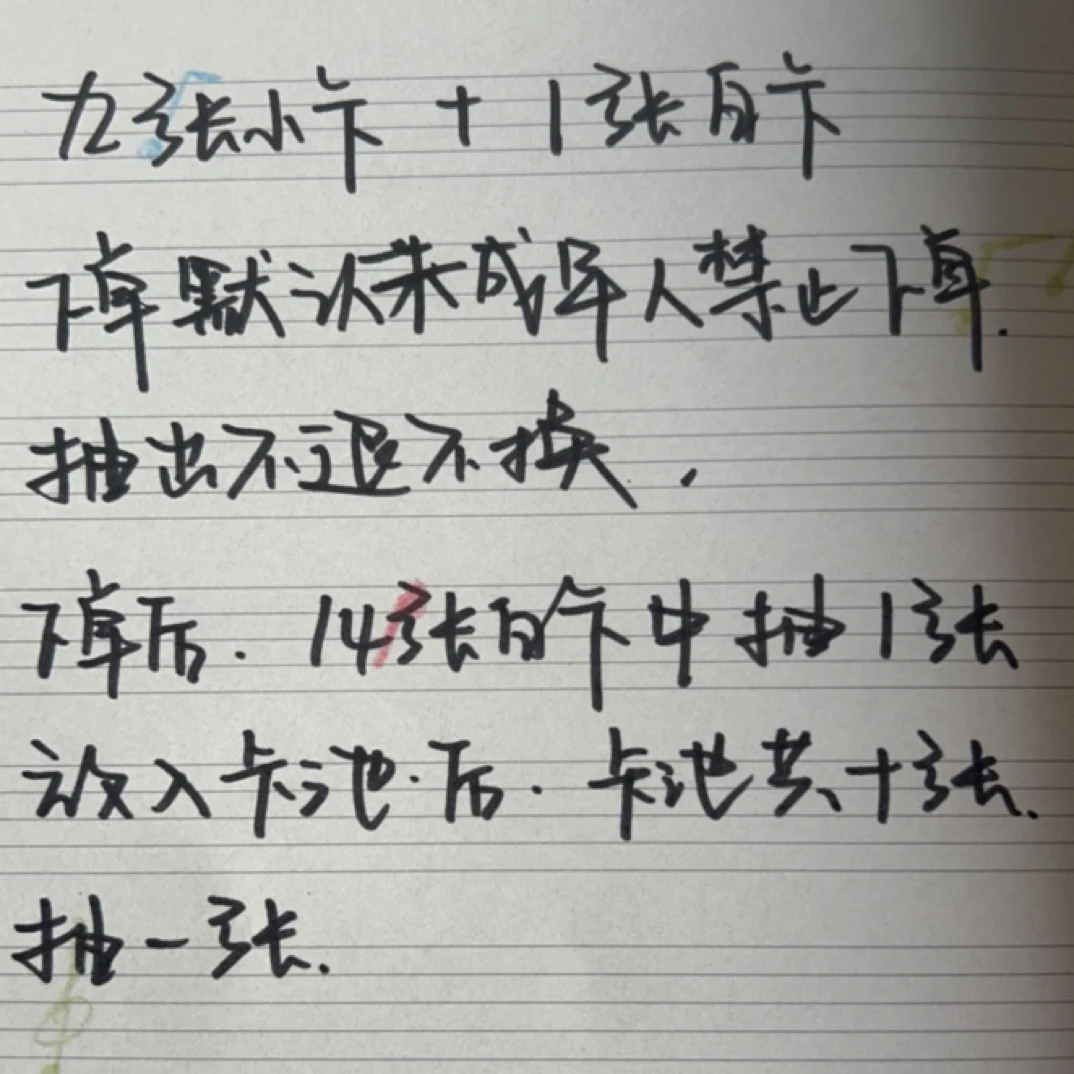 九张小卡 + 1张自卡
下单默认未成年人禁止下单.
抽出不退不换.
下单后. 14张自卡中抽1张
放入卡池.后. 卡池共十张.
抽一张.